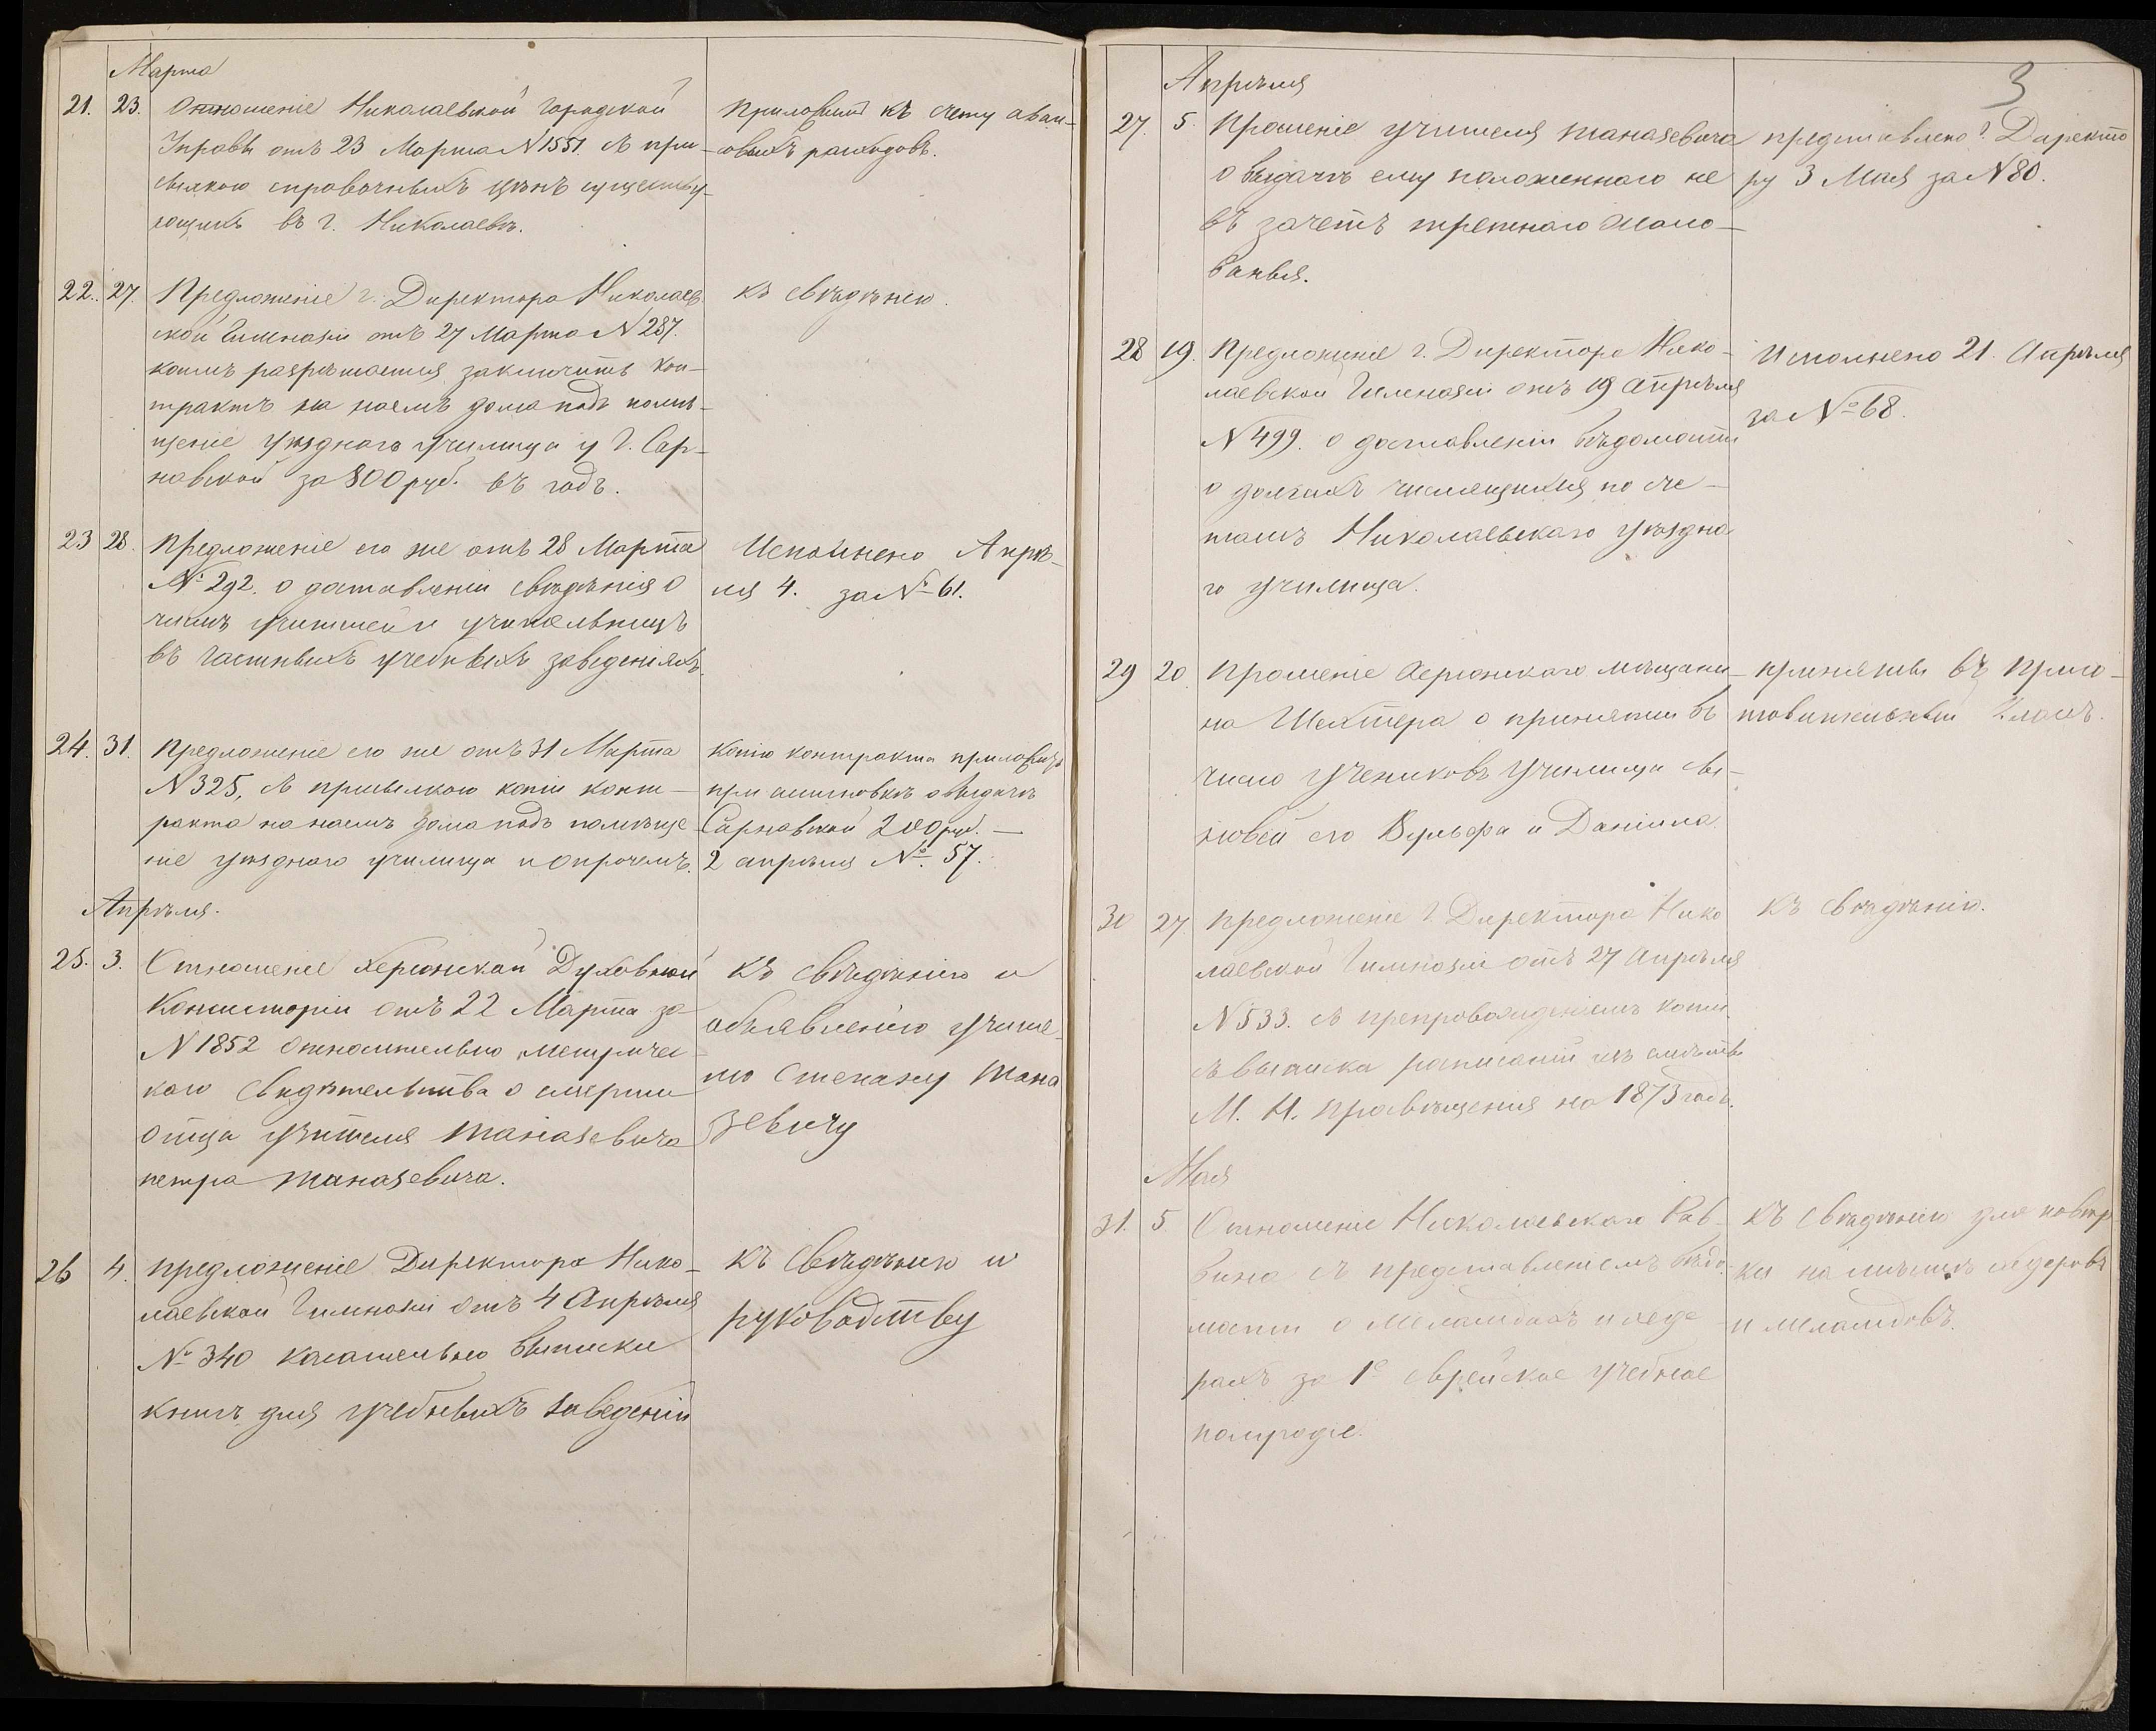 Марта
21. 23. Отношеніе Николаевской Городской
Управы отъ 23 Марта N 1551. съ при-
сылкою справочныхъ цѣнъ существу-
ющихъ въ г. Николаевѣ.
Приложить къ счету аван-
совыхъ расходовъ.
22. 27. Предложеніе г. Директора Николаев
ской Гимназіи отъ 27 Марта N 287.
коимъ разрѣшается заключить кон-
трактъ на наемъ дома подъ помѣ-
щеніе уѣзднаго училища у Г. Сар-
навской за 800 руб. въ годъ.
Къ свѣдѣнію.
23 28. Предложеніе его же отъ 28 Марта
№ 292. о доставленіи свѣдѣнія о
числѣ учителей и учительницъ
въ частныхъ учебныхъ заведеніяхъ.
Исполнено Апрѣ-
ля 4. за № 61.
24. 31. Предложеніе его же отъ 31 Марта
N 325, съ присылкою копіи конт-
ракта на наемъ дома подъ помѣще
ніе уѣзднаго училища и о прочемъ.
Копію контракта приложить
при ассигновкѣ о выдачѣ
Сарнавской 200 руб. —
2 апрѣля №. 57.
Апрѣля.
25. 3. Отношеніе Херсонской Духовной
Консисторіи отъ 22 Марта за
N 1852 относительно метричес-
каго свидѣтельства о смерти
отца учителя Танасевича
Петра Танасевича.
Къ свѣдѣнію и
объявленію учите-
лю Степану Тана
зевичу
26 4. Предложеніе Директора Нико-
лаевской Гимназіи отъ 4 Апрѣля
№ 340 касательно выписки
книгъ для учебныхъ заведеній
Къ свѣдѣнію и
руководству
3
Апрѣля
27. 5. Прошеніе учителя Таназевича
о выдачѣ ему положеннаго не
въ зачетъ третнаго жало-
ванья.
представлено г. Директо
ру 3 Мая за N 80.
28 19. Предложеніе г. Директора Нико-
лаевской Гимназіи отъ 19 Апрѣля
N 499. о доставленіи вѣдомости
о долгахъ числящихся по сче-
тамъ Николаевскаго уѣздна
го училища.
Исполнено 21. Апрѣля
за № 68.
29 20. Прошеніе Херсонскаго мѣщани-
на Шехтера о принятіи въ
число учениковъ училища сы-
новей его Вульфа и Даніила
приняты въ приго-
товительный классъ.
30 27 Предложеніе Г. Директора Нико
лаевской Гимназіи отъ 27 Апрѣля
N 533. съ препровожденіемъ копіи
съ выписки росписаній изъ смѣты
М. Н. Просвѣщенія на 1873 годъ.
Къ свѣдѣнію.
Мая
31. 5 Отношеніе Николаевскаго Рав-
вина съ представленіемъ вѣдо-
мости о меламдахъ и хеде-
рахъ за 1е еврейское учебное
полугодіе.
Къ свѣдѣнію для повѣр
ки наличныхъ хедеровъ
и меламдовъ.